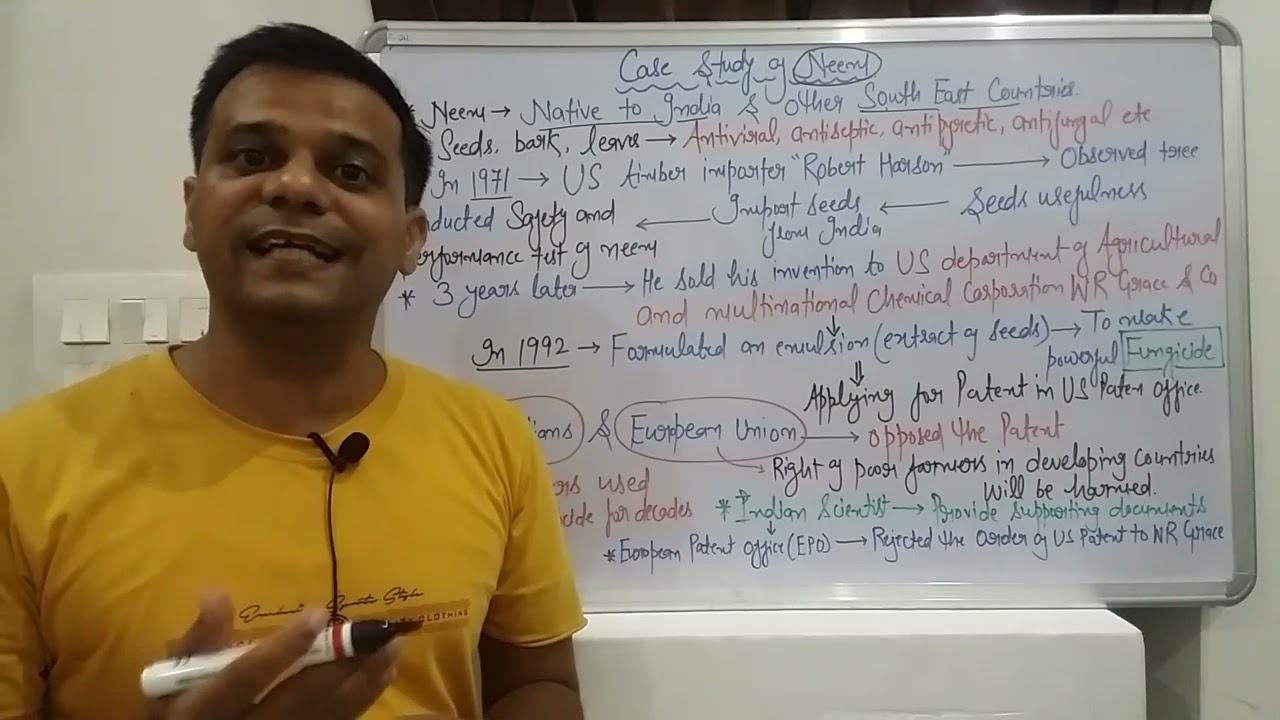 Case Study of Neem
* Neem → Native to India & other South East Countries.
Seeds, bark, leaves → Antiviral, antiseptic, antipyretic, antifungal etc
In 1971 → US timber importer "Robert Harson" → Observed tree
nducted Safety and ← Import seeds from India ← Seeds usefulness
erformance test of neem
* 3 years later → He sold his invention to US department of Agricultural
and multinational Chemical Corporation WR Grace & Co
In 1992 → Formulated an emulsion (extract of seeds) → To make
powerful Fungicide
Applying for Patent in US Paten office.
ions & European Union → opposed the Patent
Right of poor farmers in developing countries
will be harmed.
rs used
cide for decades
* Indian Scientist → Provide supporting documents
* European Patent office (EPO) → Rejected the order of US Patent to WR Grace
CLOTHING